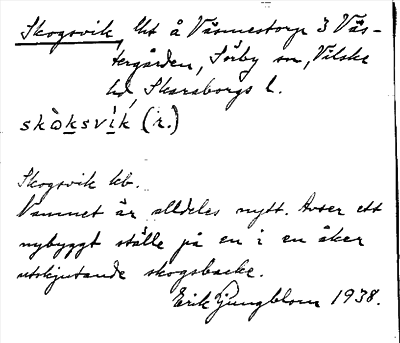 Skogsvik, lht å Väsmestorp 3 Väs-
tergården, Sörby sn, Vilske
hd, Skaraborgs l.
skòksvìk (r.)
Skogsvik kb.
Namnet är alldeles nytt. Avser ett
nybyggt ställe på en i en åker
utskjutande skogsbacke.
Erik Ljungblom 1938.